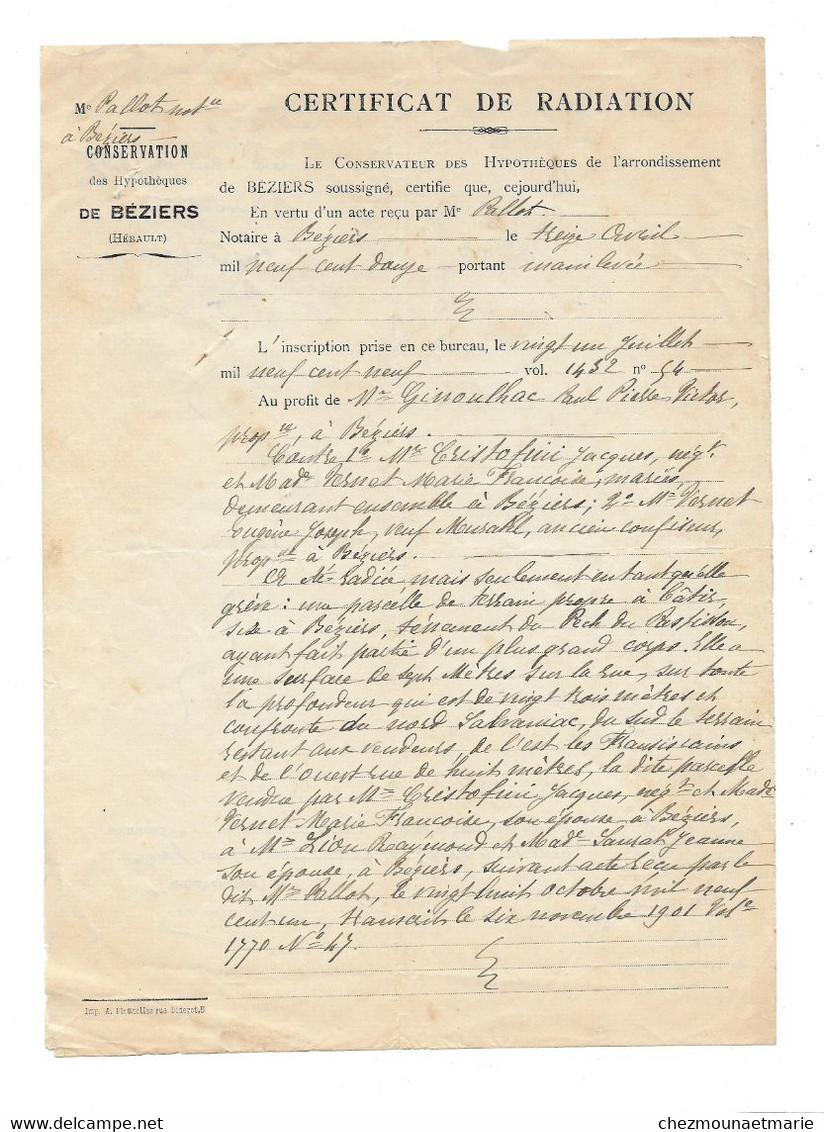 Me Pallot not re
à Béziers
CONSERVATION
des Hypothèques
DE BÉZIERS
(HÉRAULT)
CERTIFICAT DE RADIATION
LE CONSERVATEUR DES HYPOTHÈQUES de l'arrondissement
de BÉZIERS soussigné, certifie que, cejourd'hui,
En vertu d'un acte reçu par Me Pallot
Notaire à Béziers le treize Avril
mil neuf cent douze portant mainlevée
L'inscription prise en ce bureau, le vingt un Juillet
mil neuf cent neuf vol. 1432 n° 54
Au profit de Mr Ginoulhac Paul Pierre Victor,
propre, à Béziers.
Contre 1° Mr Cristofini Jacques, négt
et Made Vernet Marie Francoise, mariés,
demeurant ensemble à Béziers; 2° Mr Vernet
Eugène Joseph, veuf Murat, ancien confiseur,
propre à Béziers.
a été radiée mais seulement en tant qu'elle
grève: une parcelle de terrain propre à bâtir,
sise à Béziers, ténement du Pech du Pastissou,
ayant fait partie d'un plus grand corps. Elle a
une surface de sept mètres sur la rue, sur toute
la profondeur qui est de vingt trois mètres et
confronte du nord Salvaniac, du sud le terrain
restant aux vendeurs, de l'est les Fransiscains
et de l'Ouest rue de huit mètres, la dite parcelle
vendue par Mr Cristofini Jacques, négt et Made
Vernet Marie Francoise, son épouse à Béziers,
à Mr Lion Raymond et Made Saurat Jeanne
son épouse, à Béziers, suivant acte recu par le
dit Me Pallot, le vingt huit octobre mil neuf
cent un, transcrit le six novembre 1901 Vole
1770 No 47.
Imp. A. rue Diderot, 5
chezmounaetmarie